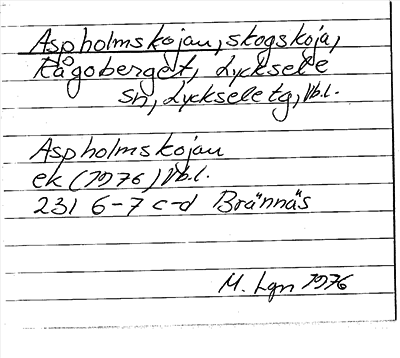 Aspholmskojan, skogskoja,
Rågoberget, Lycksele
sn, Lycksele tg, Vb.l.
Aspholmskojan
ek (1976) Vb.l.
231 6-7 c-d Brännäs
M. Lgn 1976